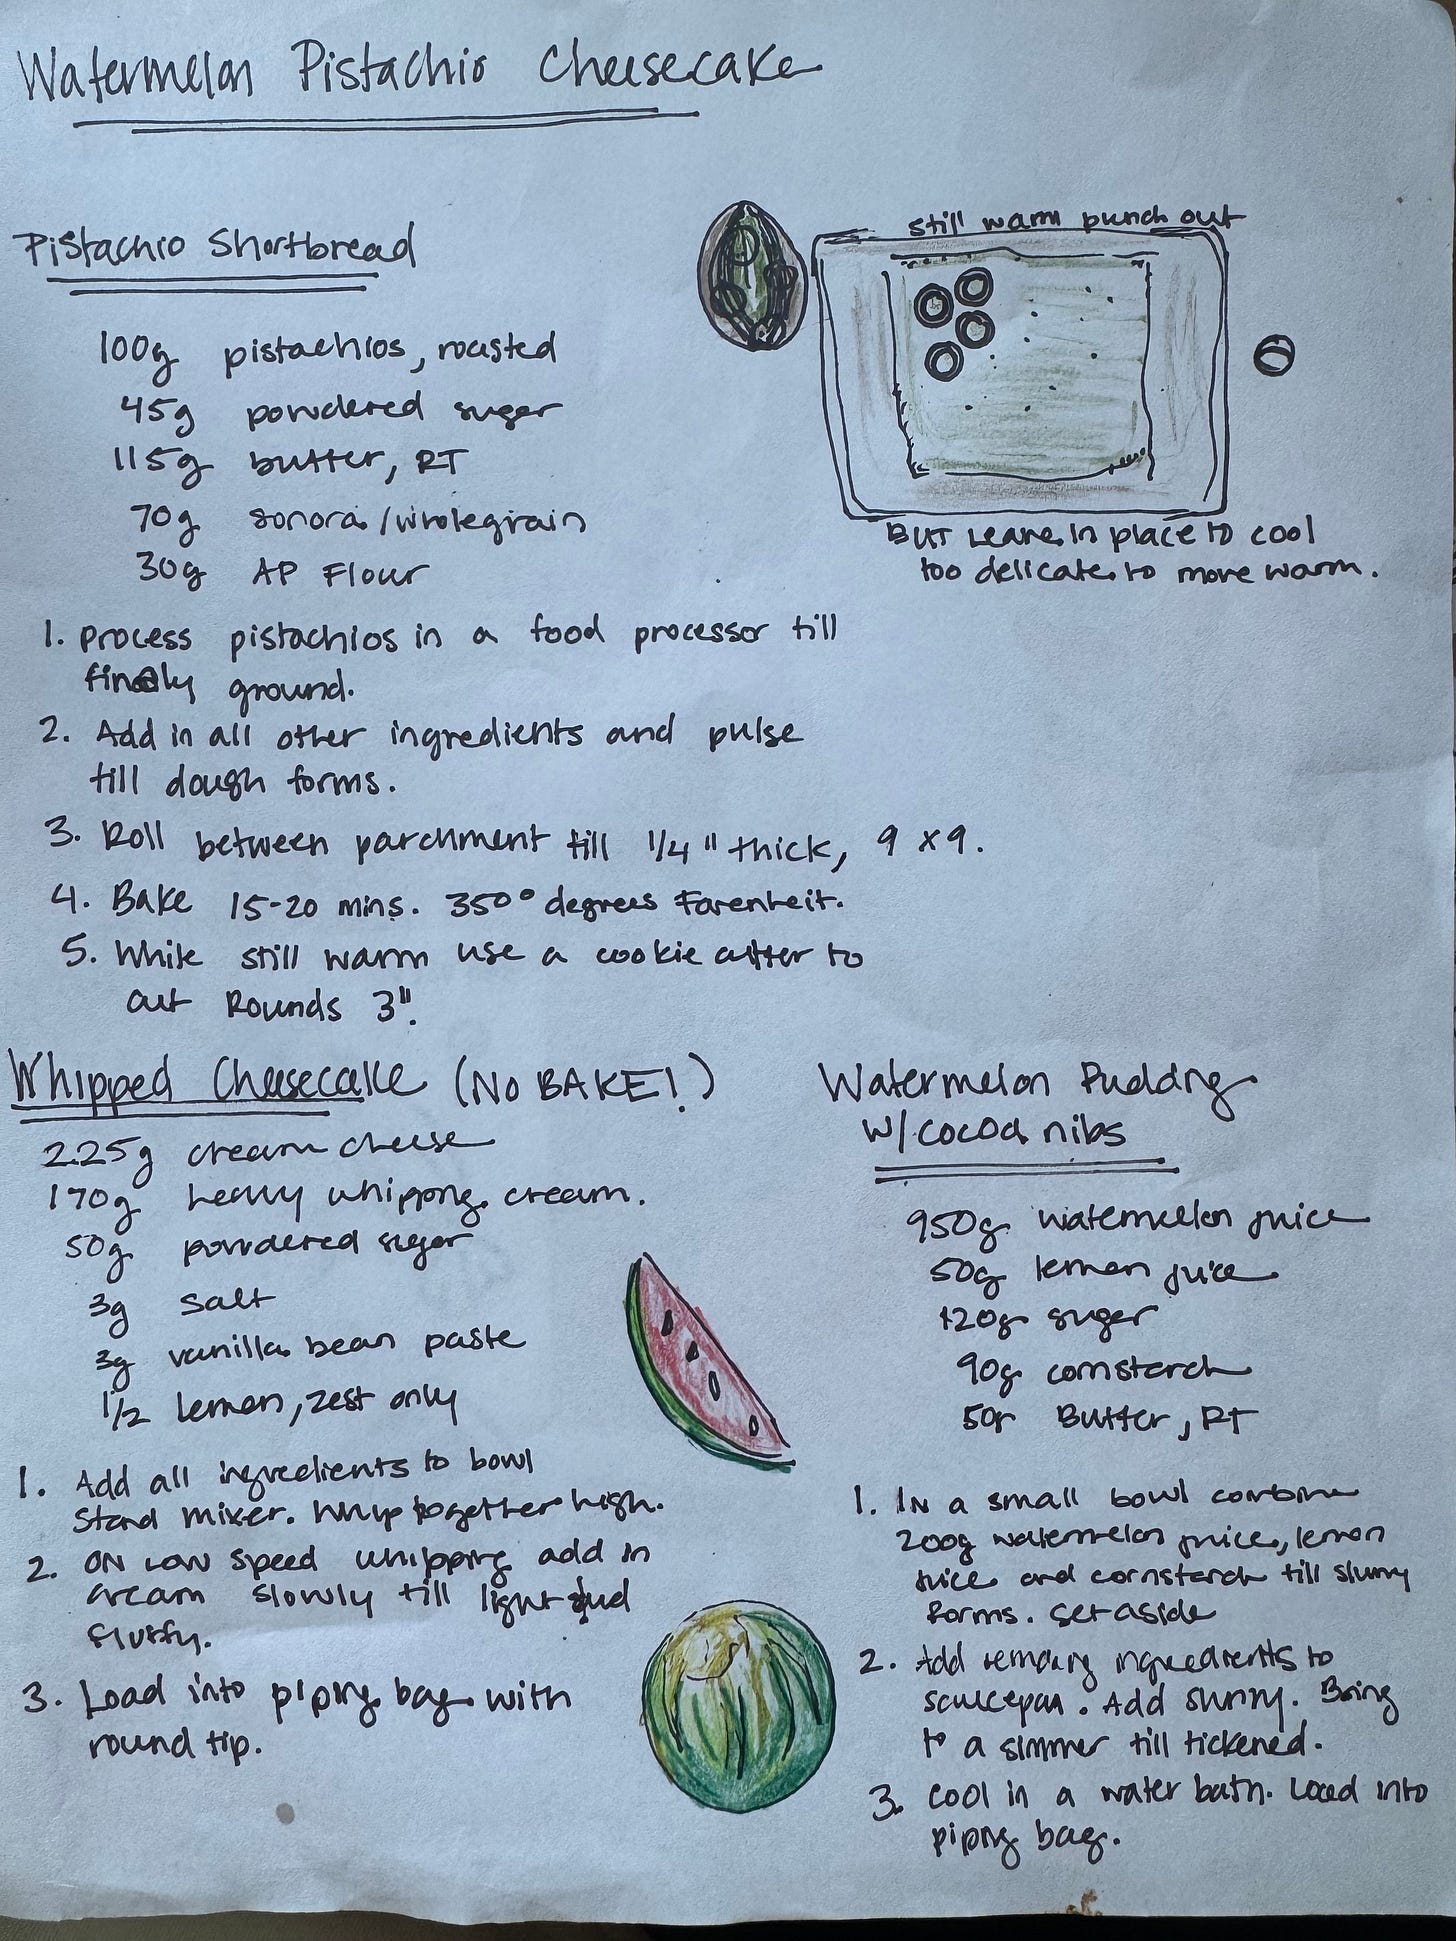 Watermelon Pistachio Cheesecake
Pistachio Shortbread
100g pistachios, roasted
45g powdered suger
115g butter, RT
70g sonora/wholegrain
30g AP Flour
still warm punch out
BUT Leave in place to cool
too delicate to more warm.
1. Process pistachios in a food processor till
finely ground.
2. Add in all other ingredients and pulse
till dough forms.
3. Roll between parchment till 1/4" thick, 9 x 9.
4. Bake 15-20 mins. 350° degrees Farenheit.
5. While still warm use a cookie cutter to
cut Rounds 3".
Whipped Cheesecake (NO BAKE!)
225g cream cheese
170g heavy whipping cream.
50g powdered suger
3g salt
3g vanilla bean paste
1/2 lemon, zest only
1. Add all ingredients to bowl
stand mixer. Whip together high.
2. ON Low speed whipping add in
cream slowly till light and
fluffy.
3. Load into piping bag with
round tip.
Watermelon Pudding
w/ cocoa nibs
950g watermelon juice
50g lemon juice
120g suger
90g cornstarch
50g Butter, RT
1. IN a small bowl combine
200g watermelon juice, lemon
juice and cornstarch till slurry
forms. Set aside
2. Add remaing ingredients to
saucepan. Add slurry. Bring
to a simmer till tickened.
3. Cool in a water bath. Load into
piping bag.